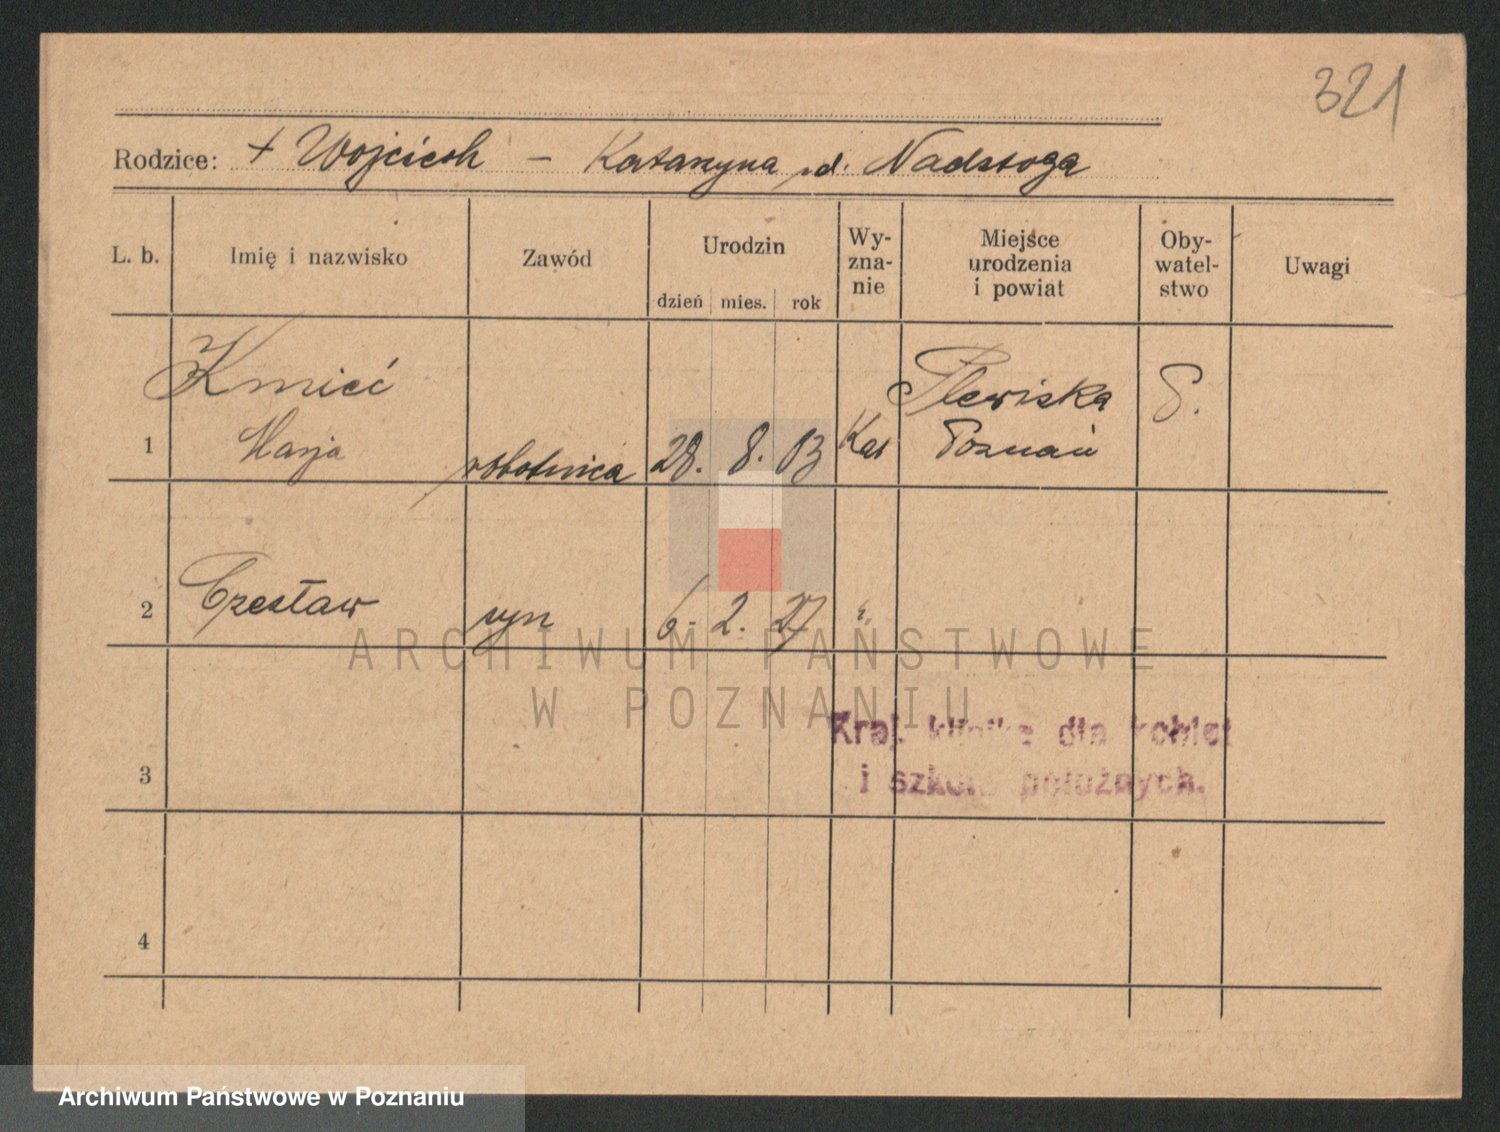 321
Rodzice: + Wojciech - Katarzyna d. Nadstoga
L. b. Imię i nazwisko Zawód Urodzin dzień mies. rok Wy-zna-nie Miejsce urodzenia i powiat Oby-watel-stwo Uwagi
Kmieć Plewiska P.
1 Marja robotnica 28. 8. 03 Kat Poznań
2 Czesław syn 6. 2. 27 "
ARCHIWUM PAŃSTWOWE
W POZNANIU
Kraj. klinika dla kobiet
3 i szkoła położnych.
4
Archiwum Państwowe w Poznaniu